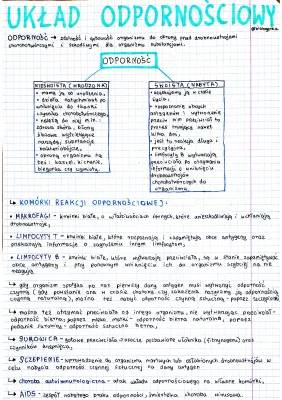 UKŁAD ODPORNOŚCIOWY
ODPORNOŚĆ → zdolność i gotowość organizmu do obrony przed drobnoustrojami
chorobotwórczymi i szkodliwymi dla organizmu substancjami.
ODPORNOŚĆ
NIESWOISTA (WRODZONA)
• mamy ją od urodzenia,
• działa natychmiast po
wniknięciu do tkanki
czynnika chorobotwórczego,
• należą do niej m.in.:
zdrowa skóra, błony
śluzowe wyściełające
narządy, substancje
bakteriobójcze,
• obroną organizmu są
też: kaszel, kichanie,
biegunka czy wymioty.
SWOISTA (NABYTA)
• uzyskujemy ją w ciągu
życia,
• rozpoznanie obcych
antygenów i wytworzenie
przeciw nim przeciwciał to
proces trwający nawet
kilka dni,
• jest to reakcja długa i
precyzyjna,
• limfocyty B wytwarzają
przeciwciała po otrzymaniu
informacji o wniknięciu
drobnoustrojów
chorobotwórczych do
organizmu.
↳ KOMÓRKI REAKCJI ODPORNOŚCIOWEJ:
↳ MAKROFAGI - krwinki białe, o właściwościach żernych, które unieszkodliwiają i wchłaniają
drobnoustroje,
↳ LIMFOCYTY T - krwinki białe, które rozpoznają i zapamiętują obce antygeny oraz
przekazują informację o zagrożeniu innym limfocytom,
↳ LIMFOCYTY B - krwinki białe, które wytwarzają przeciwciała, są w stanie zapamiętać
obce antygeny i przy ponownym wniknięciu ich do organizmu szybciej na nie
reagują.
↳ gdy organizm spotka się po raz pierwszy z danym antygenem musi wytworzyć odporność
czynną
czynną naturalną), można też nabyć odporność czynną sztuczną - poprzez szczepionki
↳ można też otrzymać przeciwciała od innego organizmu, nie wytwarzając przeciwciał -
odporność bierna; poprzez mleko matki - odporność bierna naturalna, poprzez
podanie surowicy - odporność sztuczna bierna,
↳ SUROWICA - gotowe przeciwciała
czynników krzepnięcia,
↳ SZCZEPIENIE - wprowadzenie do organizmu martwych lub osłabionych drobnoustrojów w
celu nabycia odporności czynnej sztucznej na dany antygen
↳ choroba autoimmunologiczna - atak układu odpornościowego na własne komórki,
↳ AIDS - zespół nabytego braku odporności, śmiertelna choroba wirusowa.